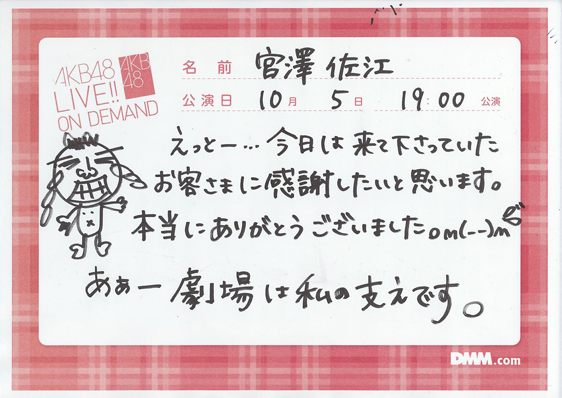 AKB48
LIVE!!
ON DEMAND
AKB
48
名前 宮澤佐江
公演日 10月 5日 19:00 公演
えっとー…今日は来て下さっていた
お客さまに感謝したいと思います。
本当にありがとうございました。m(--)m
あぁー劇場は私の支えです。
DMM.com